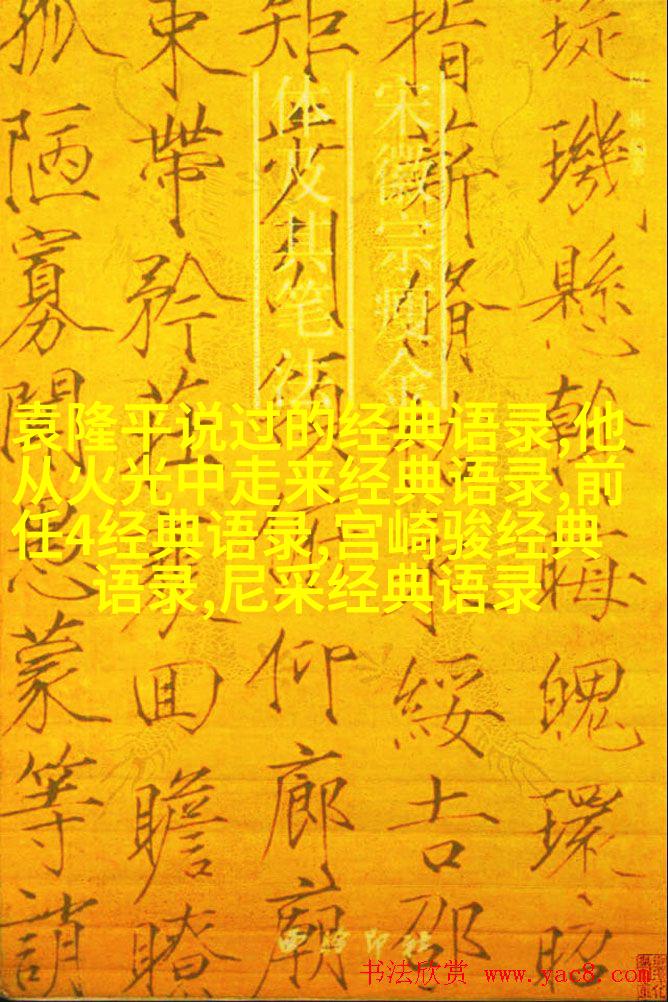 璇璣懸斡晦魄環照
指薪脩祜永綏吉劭
矩步引領俯仰廊廟
束帶矜莊徘徊瞻眺
孤陋寡聞愚蒙等誚
宋徽宗瘦金
体及其笔法
袁隆平说过的经典语录,他
从火光中走来经典语录,前
任4经典语录,宫崎骏经典
语录,尼采经典语录
西泠印社
书法欣赏 www.yac8.com